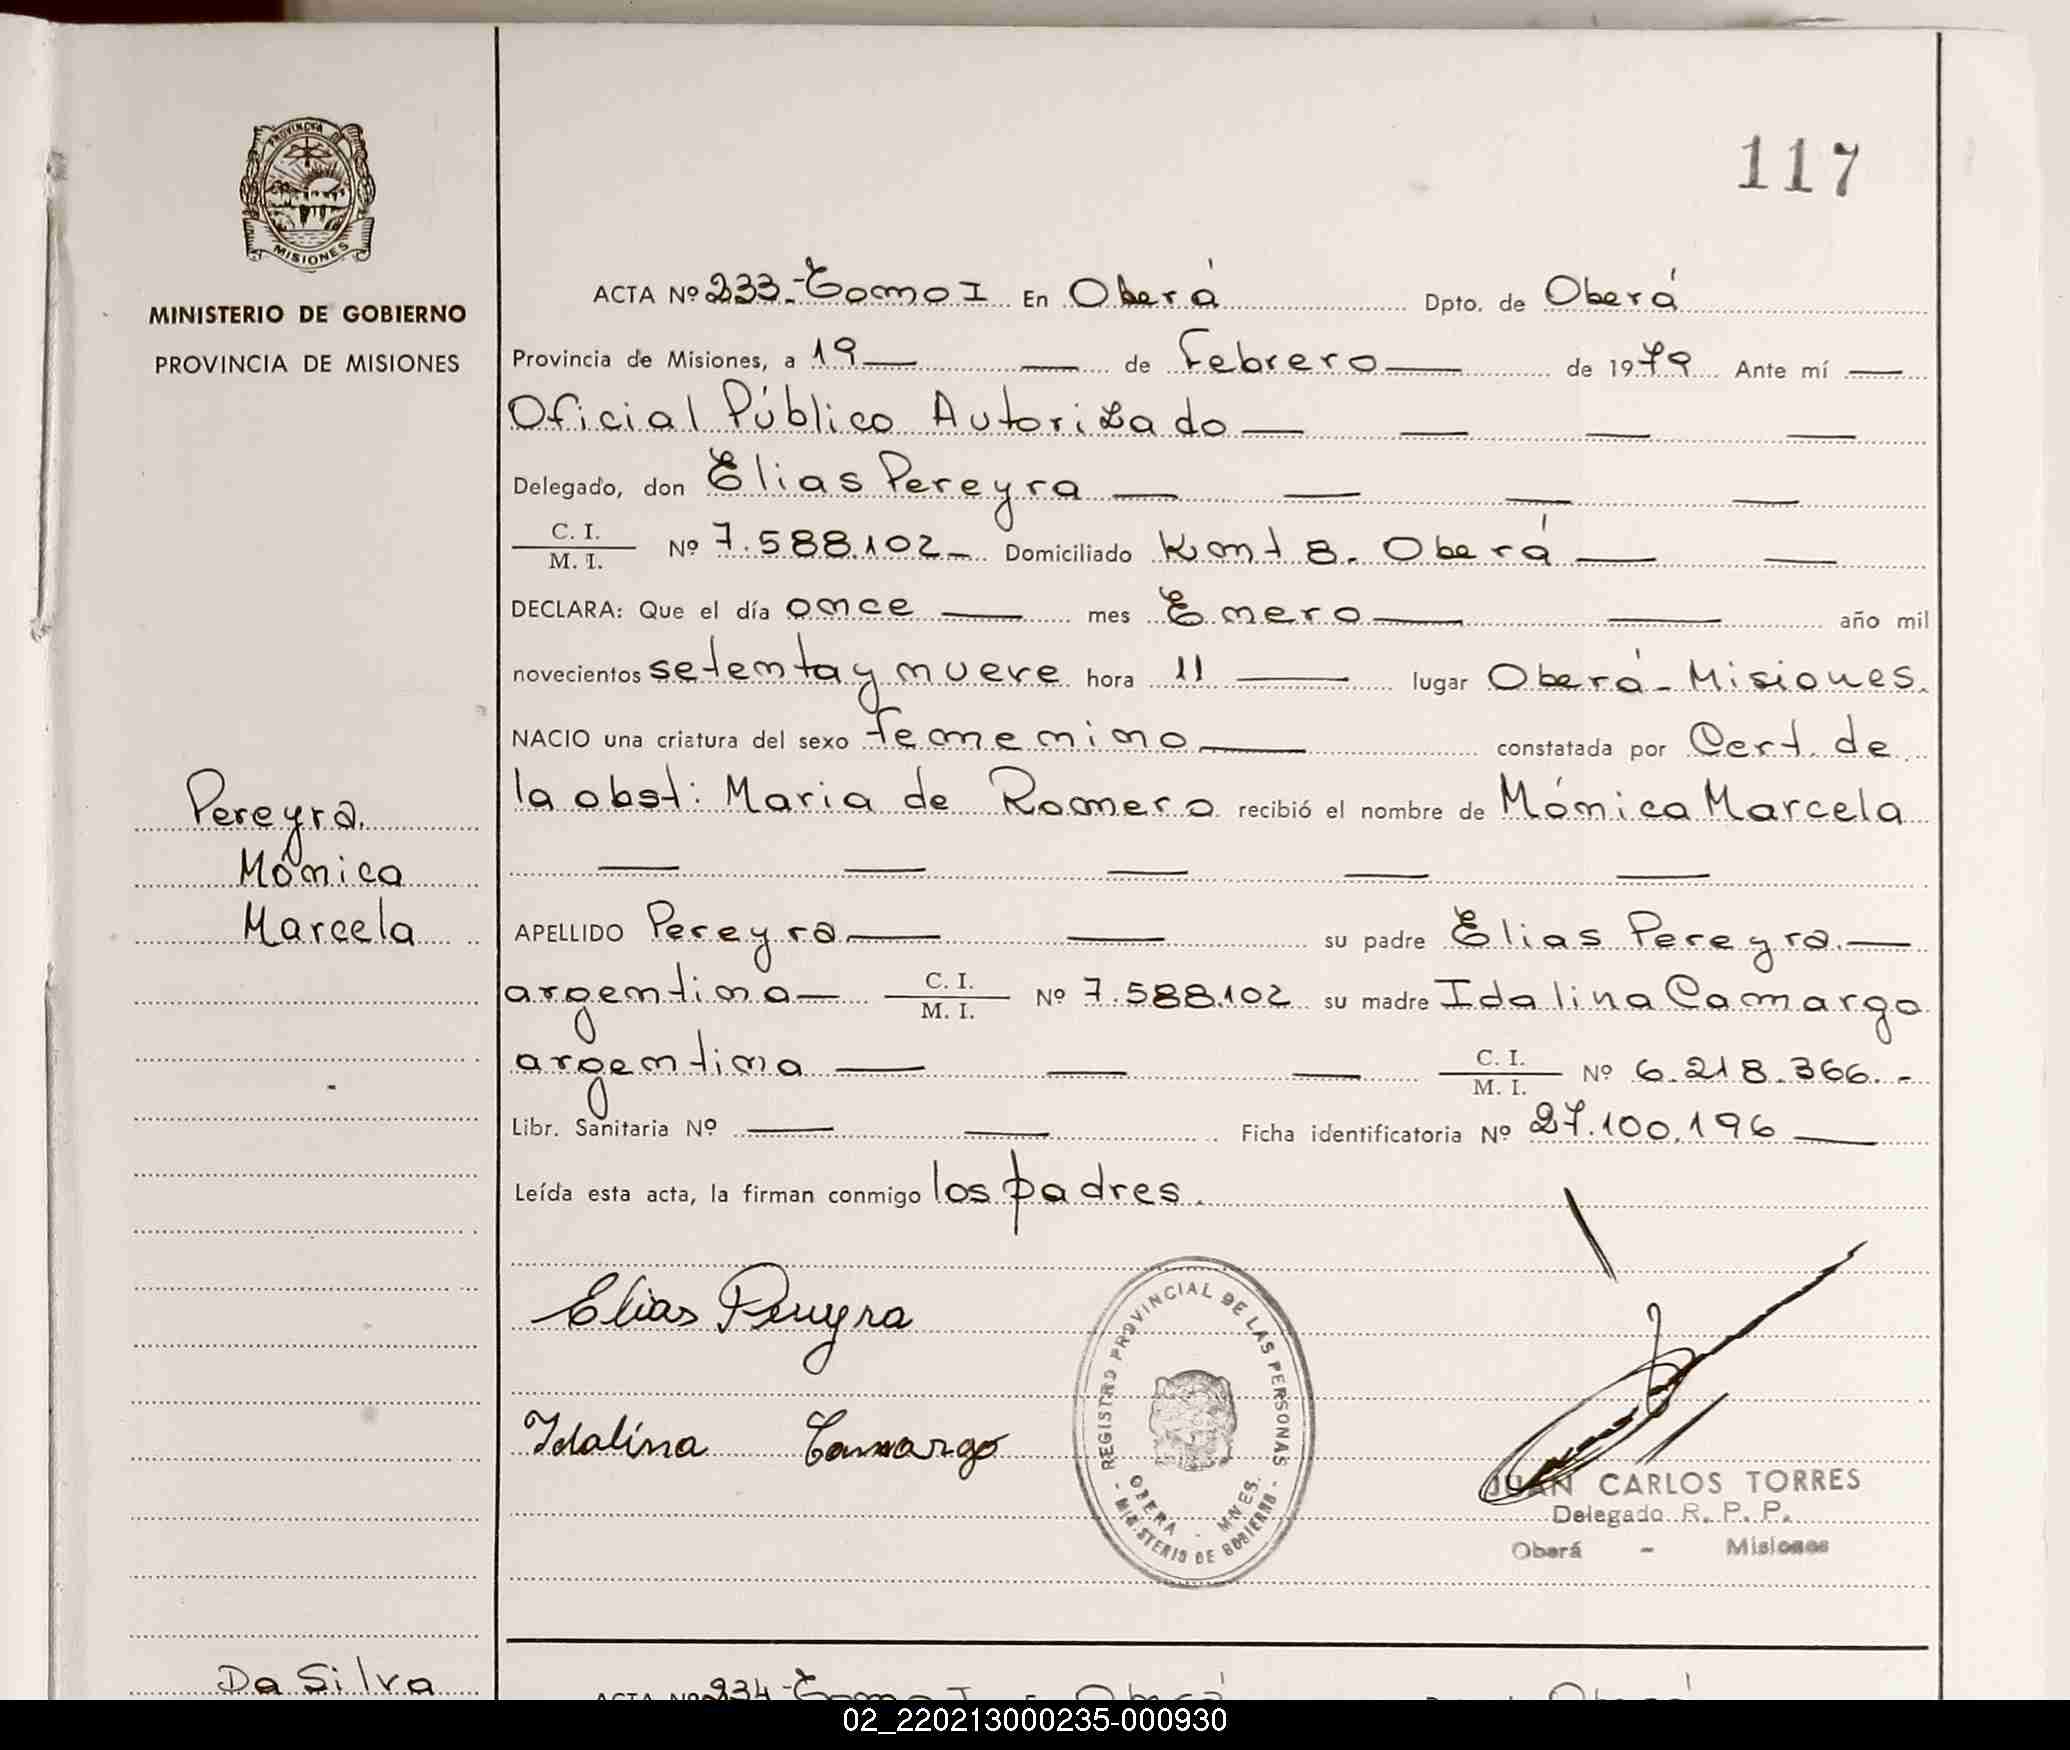 PROVINCIA
MISIONES
MINISTERIO DE GOBIERNO
PROVINCIA DE MISIONES
117
ACTA Nº 233.- Tomo I En Oberá Dpto. de Oberá
Provincia de Misiones, a 19 — — de Febrero — de 1979 Ante mí —
Oficial Público Autorizado — — — —
Delegado, don Elias Pereyra — — — —
C. I.
M. I.
Nº 7.588.102 - Domiciliado Km t 8. Oberá — —
DECLARA: Que el día once — mes Enero — — año mil
novecientos setenta y nueve hora 11 — lugar Oberá - Misiones.
NACIO una criatura del sexo femenino — constatada por Cert. de
la obst: Maria de Romero recibió el nombre de Mónica Marcela
— — — — —
Pereyra.
Mónica
Marcela
APELLIDO Pereyra — — su padre Elias Pereyra. —
argentina — C. I. / M. I. Nº 7.588.102 su madre Idalina Camargo
argentina — — — C. I. / M. I. Nº 6.218.366. -
Libr. Sanitaria Nº — — Ficha identificatoria Nº 27.100.196 —
Leída esta acta, la firman conmigo los padres.
Elias Pereyra
Idalina Camargo
REGISTRO PROVINCIAL DE LAS PERSONAS
OBERA - MNES.
- MINISTERIO DE GOBIERNO -
JUAN CARLOS TORRES
Delegado R. P. P.
Oberá - Misiones
Da Silva
ACTA Nº 234 - Tomo I En Oberá Dpto. de Oberá
02_220213000235-000930